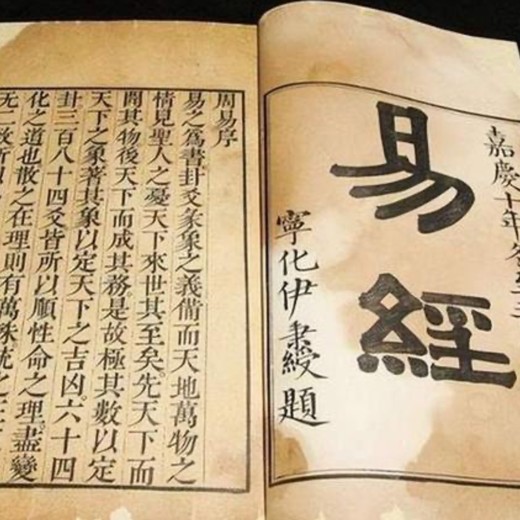 嘉慶十年
易經
寧化伊秉綬題
周易序
易之爲書卦爻彖象之義備而天地萬物之
情見聖人之憂天下來世其至矣先天下而
開其物後天下而成其務是故極其數以定
天下之象著其象以定天下之吉凶六十四
卦三百八十四爻皆所以順性命之理盡變
化之道也散之在理則有萬殊統之在
无二致所以